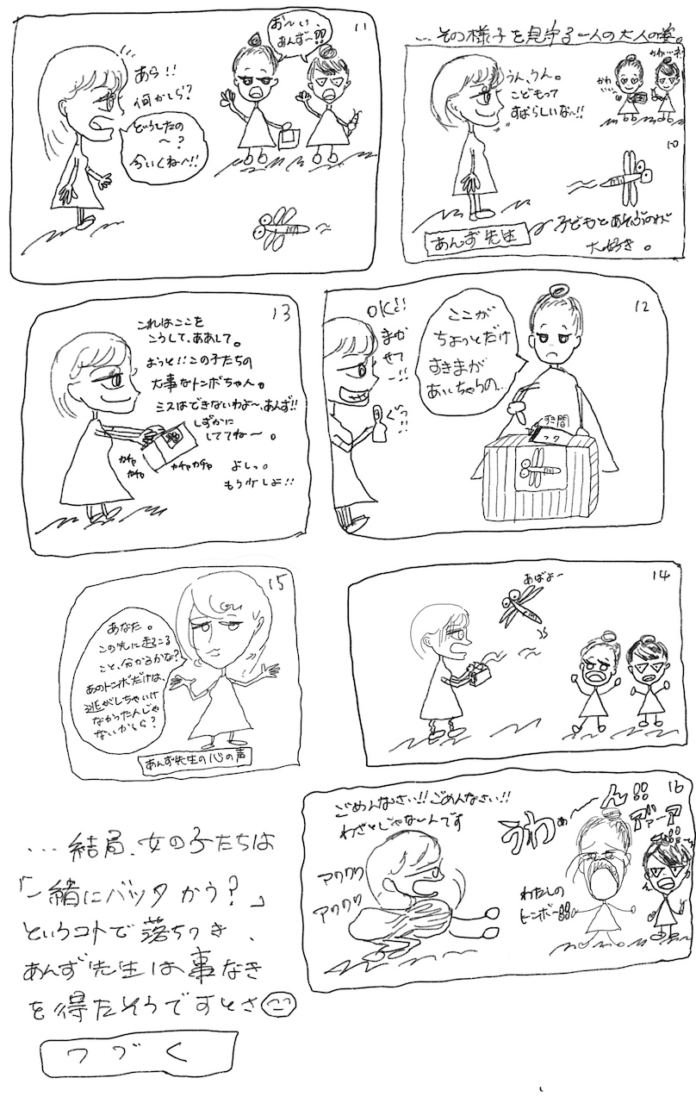 …その様子を見守る一人の大人の姿。
うん、うん。
こどもって
すばらしいな〜!!
かわ
かわ…
10
あんず先生
子どもとあそぶのが
大好き。
11
お〜い、
あんず〜!!
あら!!
何かしら?
どうしたの
〜?
今いくね〜!!
12
ここが
ちょっとだけ
すきまが
あいちゃうの…
OK!!
まか
せて
ー!!
ぐっ!!
すき間
フタ
13
これはここを
こうして、ああして。
おっと!!この子たちの
大事なトンボちゃん。
ミスはできないわよ〜、あんず!!
しずかに
しててね〜。
カチャ
カチャ
カチャカチャ
よしっ。
もう少しよ!!
14
あばよ〜
15
あなた。
この先に起こる
こと、分かるかな?
あのトンボだけは、
逃がしちゃいけ
なかったんじゃ
ないかしら?
あんず先生の心の声
16
ごめんなさい!!ごめんなさい!!
わざとじゃないんです
アワワワ
アワワワ
うわぁーん!!
アァーア
わたしの
トンボー!!
…結局、女の子たちは
「一緒にバッタかう?」
というコトで落ちつき、
あんず先生は事なき
を得たそうですとさ
つづく